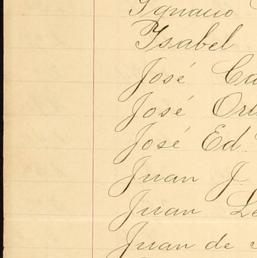 Ignacio
Isabel
José Cu
José Ori
José Ed.
Juan J.
Juan Le
Juan de